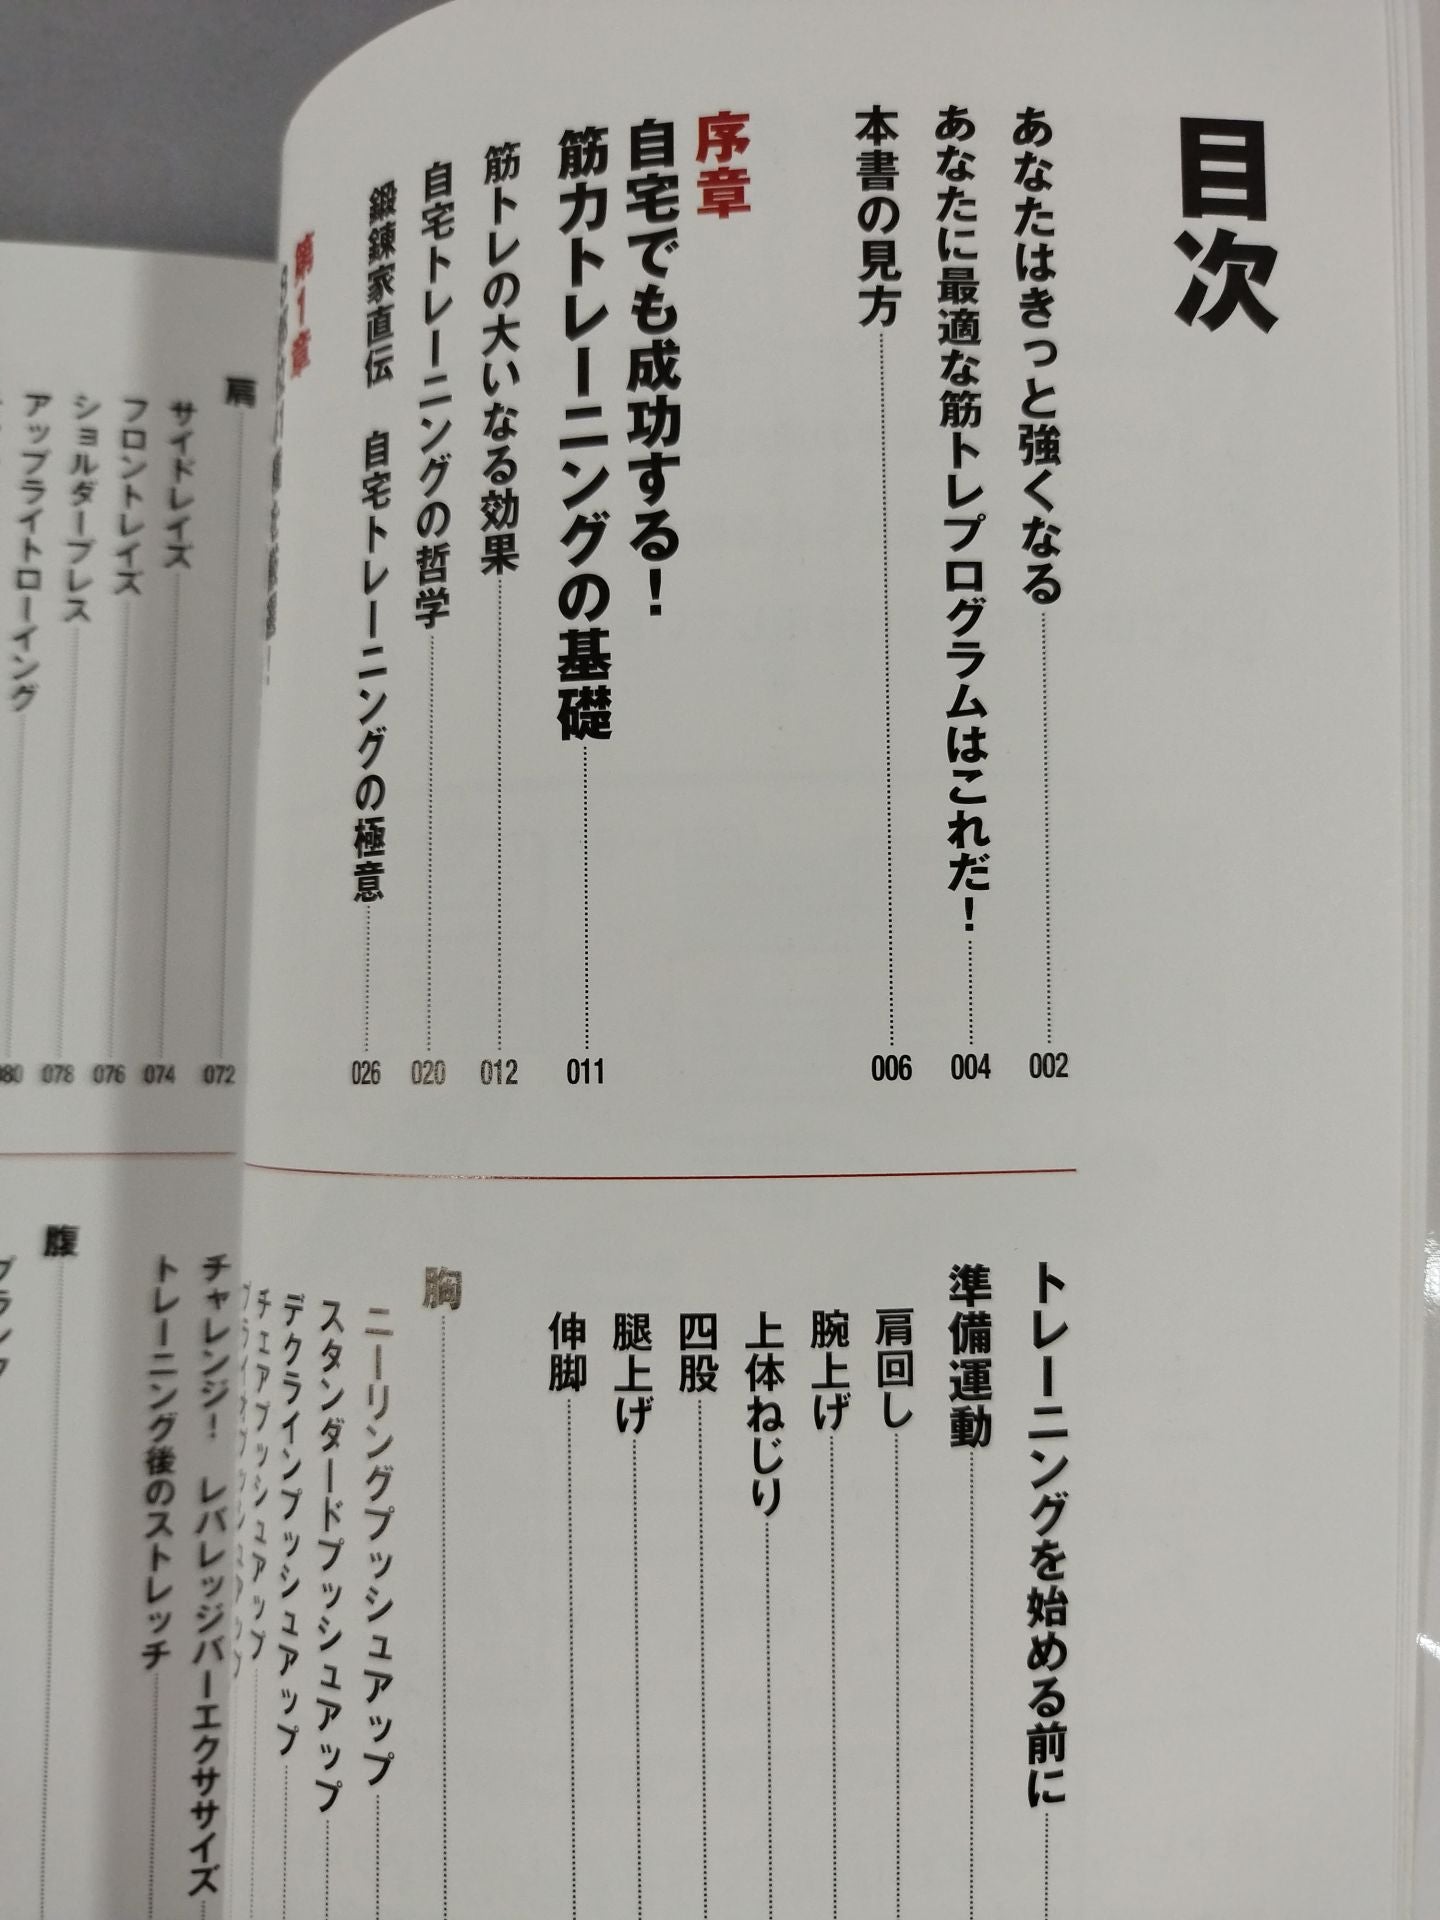 目次
あなたはきっと強くなる 002
あなたに最適な筋トレプログラムはこれだ! 004
本書の見方 006
序章
自宅でも成功する!
筋力トレーニングの基礎 011
筋トレの大いなる効果 012
自宅トレーニングの哲学 020
鍛錬家直伝 自宅トレーニングの極意 026
第1章
トレーニングを始める前に
準備運動
肩回し
腕上げ
上体ねじり
四股
腿上げ
伸脚
胸
ニーリングプッシュアップ
スタンダードプッシュアップ
デクラインプッシュアップ
チェアプッシュアップ
肩 072
サイドレイズ 074
フロントレイズ 076
ショルダープレス 078
アップライトローイング
チャレンジ! レバレッジバーエクササイズ
トレーニング後のストレッチ
腹